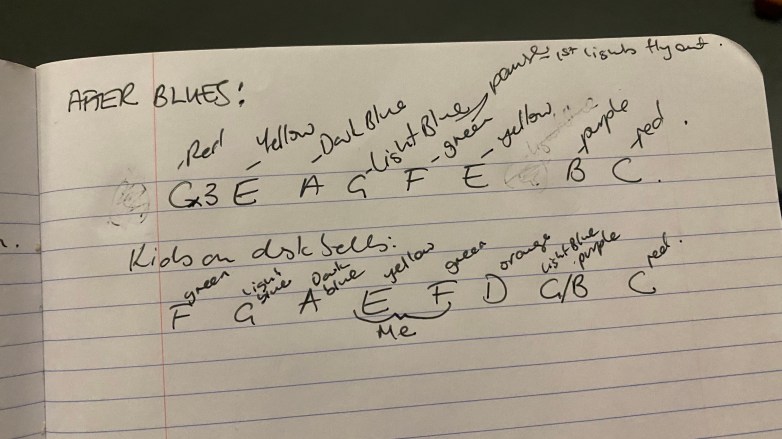 AFTER BLUES:
Red Yellow Dark Blue Light Blue green pause - 1st lights fly out.
yellow... purple red.
Cx3 E A G F E B C.
Kids on desk bells:
green Light blue Dark blue yellow green orange Light Blue purple red.
F G A E F D G/B C
Me